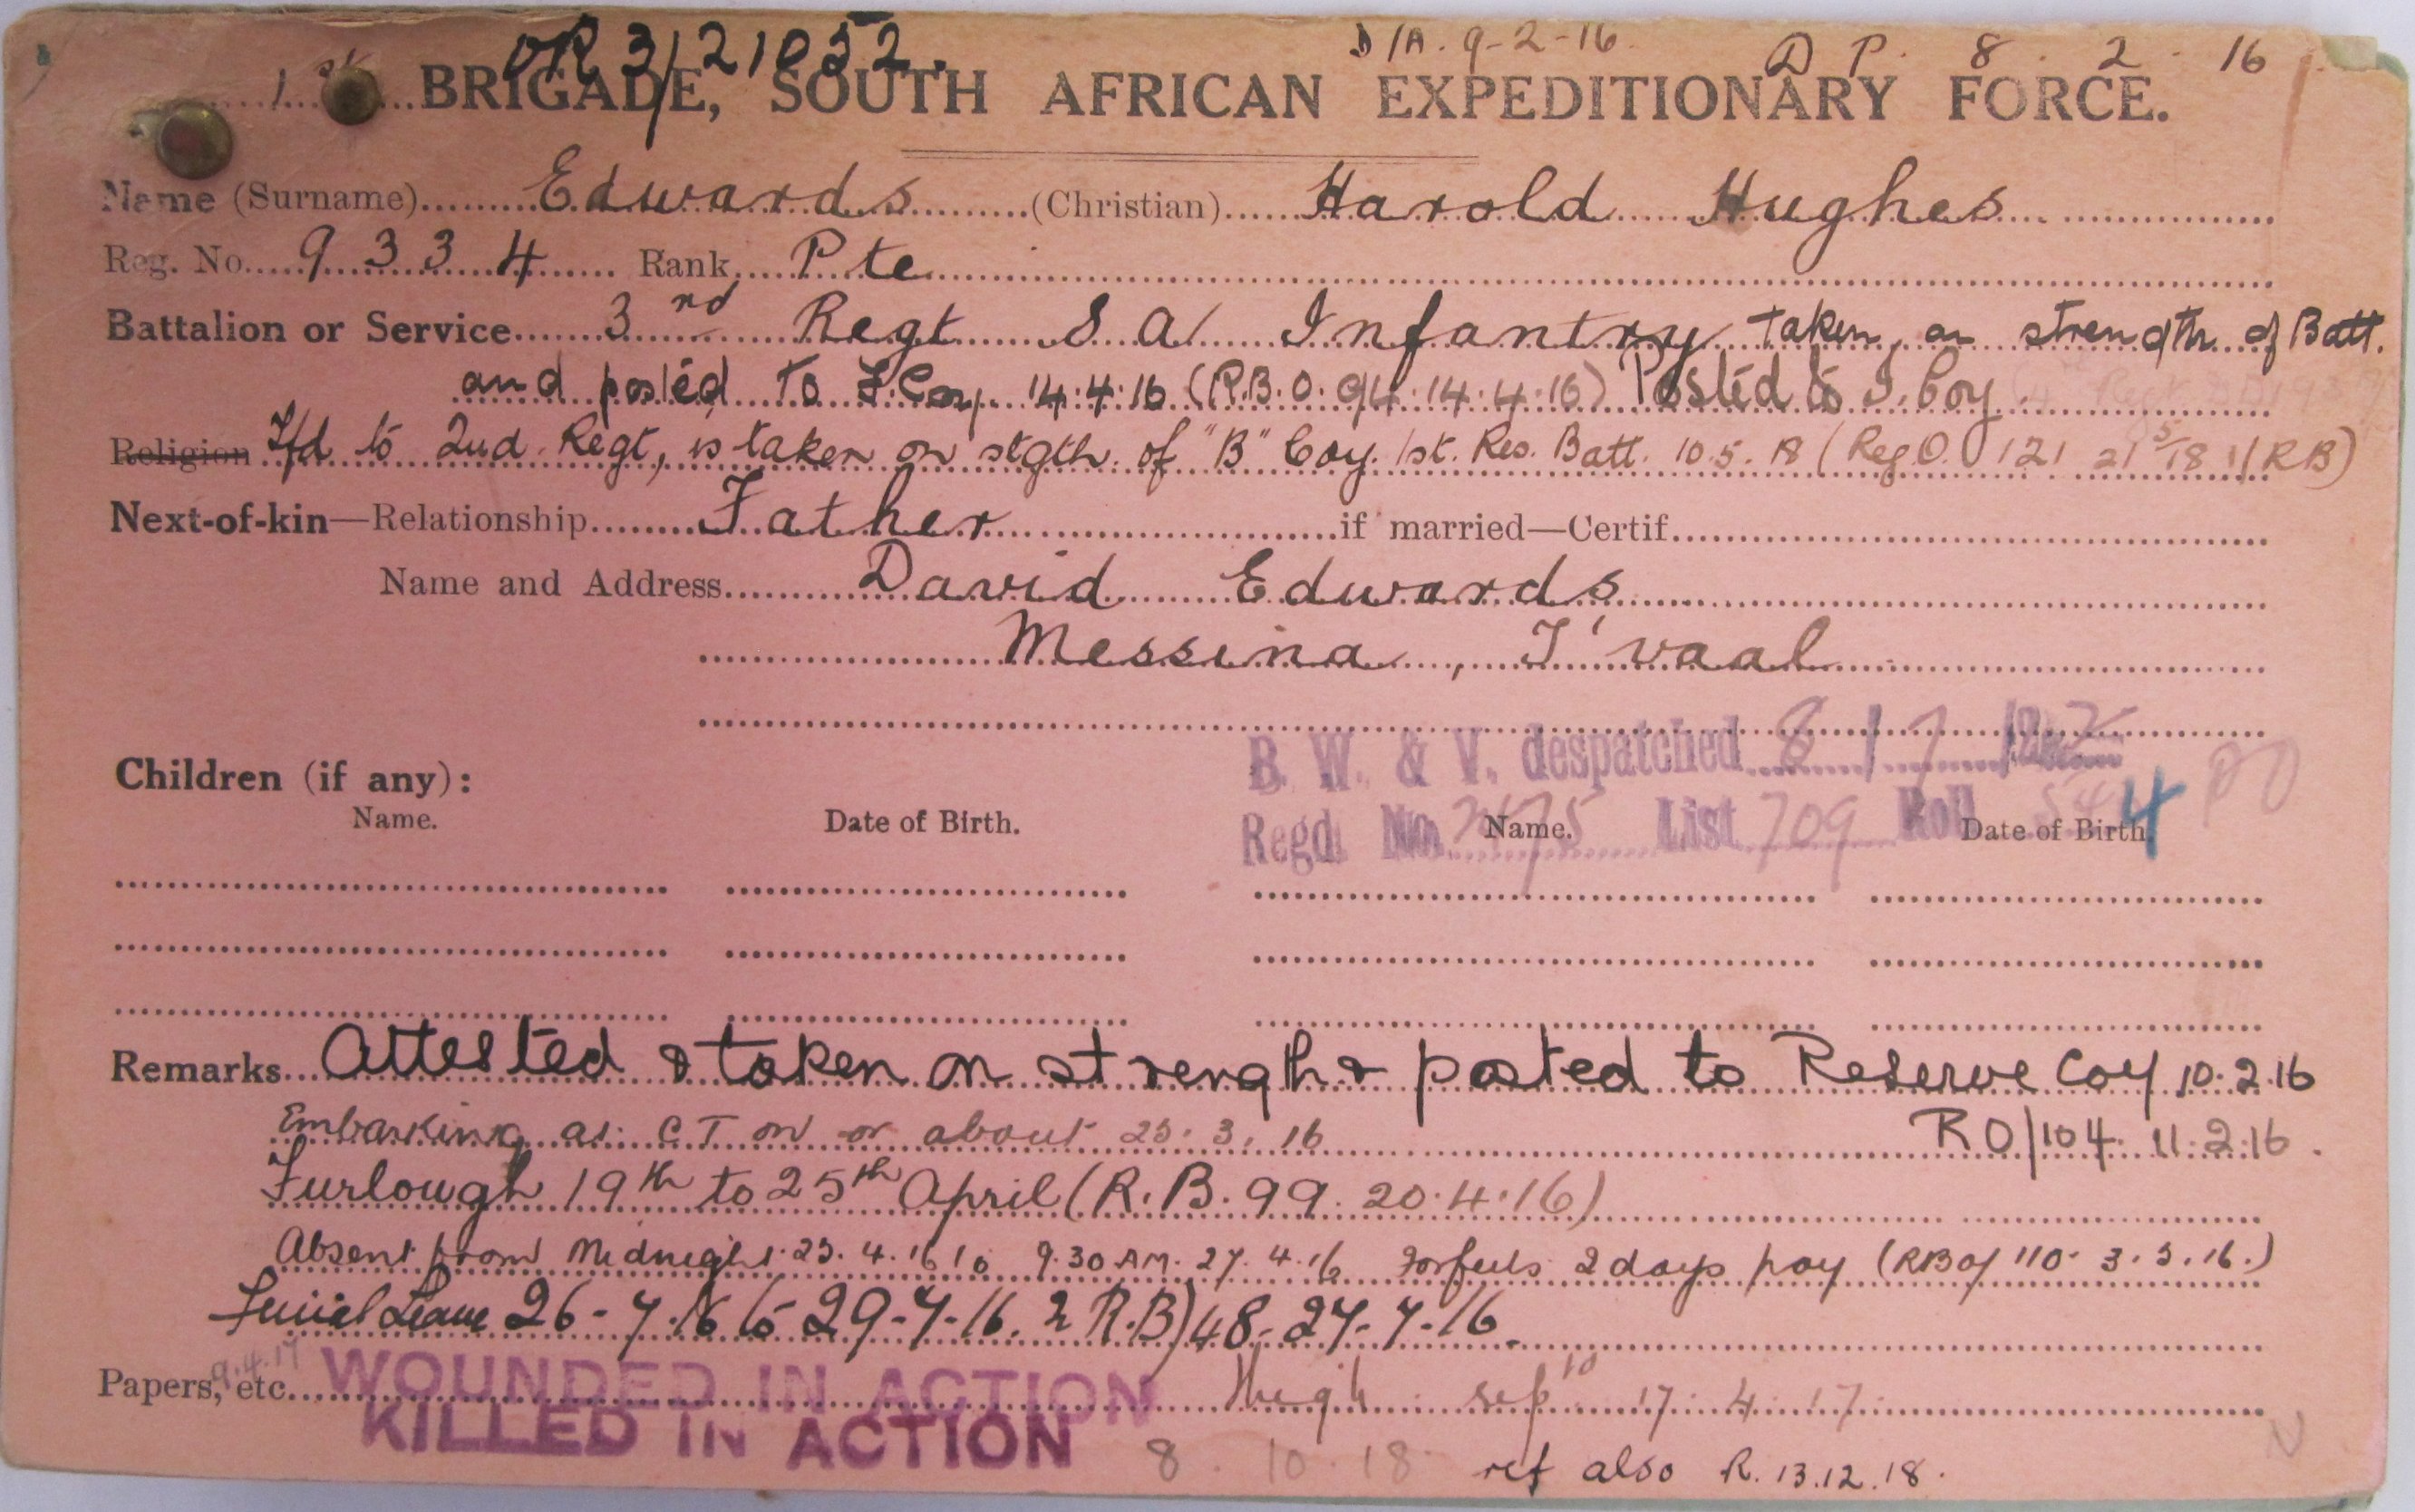 OR 3/21052. D/A. 9-2-16 D P. 8. 2. 16
1st BRIGADE, SOUTH AFRICAN EXPEDITIONARY FORCE.
Name (Surname) Edwards (Christian) Harold Hughes
Reg. No. 9334 Rank Pte
Battalion or Service 3rd Regt S A Infantry taken on strength of Batt.
and posted to F. Coy. 14.4.16 (R.B.O. 94. 14.4.16) Posted to I. Coy
Religion Tfd to 2nd Regt, is taken on stgth. of "B" Coy. 1st. Res. Batt. 10.5.18 (Reg O. 121 21/5/18 1/RB)
Next-of-kin—Relationship Father if married—Certif.
Name and Address David Edwards
Messina, T'vaal
B. W. & V. despatched 6/7/22
Children (if any):
Regd. No. List 709 Roll 4
Name. Date of Birth. Name. Date of Birth.
Remarks Attested & taken on strength & posted to Reserve Coy 10.2.16
Embarking as C T on or about 25.3.16 RO/104 11.2.16.
Furlough 19th to 25th April (R.B. 99. 20.4.16)
Absent from Midnight 25.4.16 to 9.30 AM. 27.4.16 forfeits 2 days pay (RBO/ 110. 3.5.16.)
Leave 26-7-16 to 29-7-16. 2 R.B) 48-27-7-16.
9.4.17
Papers, etc. WOUNDED IN ACTION Thigh 17.4.17
KILLED IN ACTION 8. 10. 18 ref also R. 13.12.18.